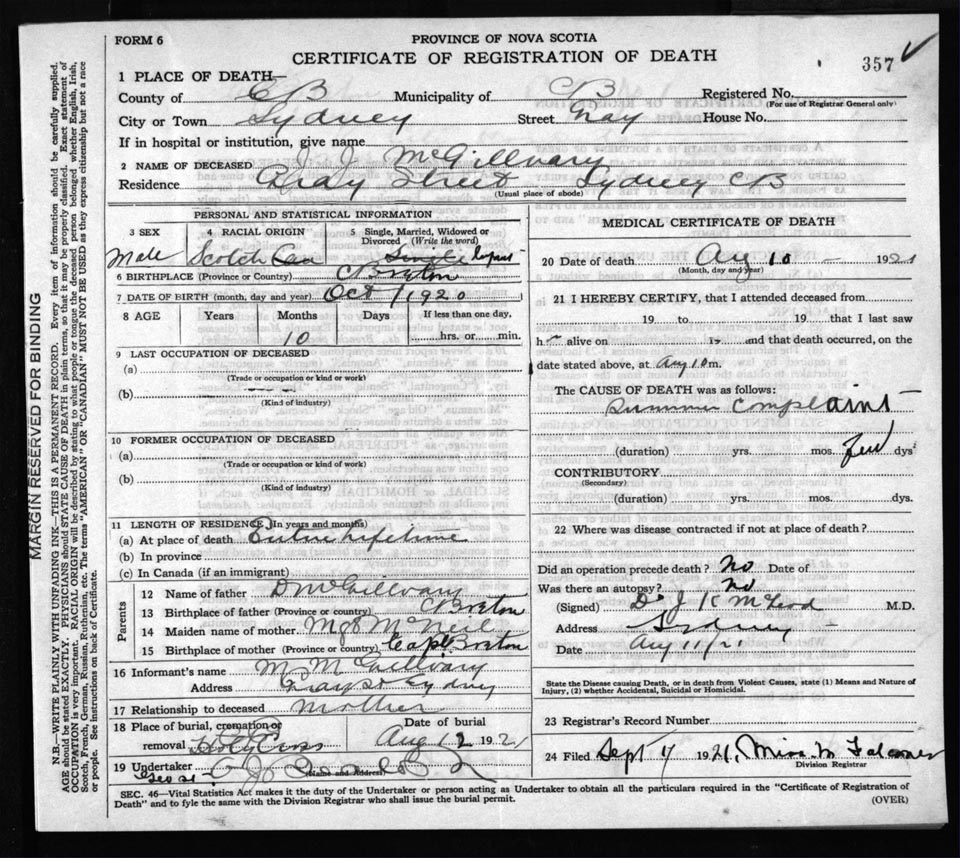 FORM 6
PROVINCE OF NOVA SCOTIA
CERTIFICATE OF REGISTRATION OF DEATH
357
1 PLACE OF DEATH—
County of CB Municipality of CB Registered No.
(For use of Registrar General only)
City or Town Sydney Street Gray House No.
If in hospital or institution, give name
2 NAME OF DECEASED J. J. McGillvary
Residence Gray Street Sydney CB
(Usual place of abode)
PERSONAL AND STATISTICAL INFORMATION
3 SEX
Male
4 RACIAL ORIGIN
Scotch
5 Single, Married, Widowed or Divorced (Write the word)
Single
6 BIRTHPLACE (Province or Country) C Breton
7 DATE OF BIRTH (month, day and year) Oct 1 1920
8 AGE Years Months Days If less than one day,
10 hrs. or min.
9 LAST OCCUPATION OF DECEASED
(a)
(Trade or occupation or kind or work)
(b)
(Kind of industry)
10 FORMER OCCUPATION OF DECEASED
(a)
(Trade or occupation or kind or work)
(b)
(Kind of industry)
11 LENGTH OF RESIDENCE (In years and months)
(a) At place of death Entire Lifetime
(b) In province
(c) In Canada (if an immigrant)
Parents
12 Name of father D McGillvary
13 Birthplace of father (Province or country) C Breton
14 Maiden name of mother Mgt McNeil
15 Birthplace of mother (Province or country) Cape Breton
16 Informant's name M McGillvary
Address Gray St Sydney
17 Relationship to deceased Mother
18 Place of burial, cremation or removal Holy Cross
Date of burial
Aug 12 1921
19 Undertaker
(Name and Address)
MEDICAL CERTIFICATE OF DEATH
20 Date of death Aug 10 1921
(Month, day and year)
21 I HEREBY CERTIFY, that I attended deceased from
19 to 19 that I last saw
h alive on 19 and that death occurred, on the
date stated above, at Aug 10 m.
The CAUSE OF DEATH was as follows:
Summer Complaint
(duration) yrs. mos. few dys
CONTRIBUTORY
(Secondary)
(duration) yrs. mos. dys.
22 Where was disease contracted if not at place of death?
Did an operation precede death? No Date of
Was there an autopsy? No
(Signed) Dr J K McLeod M.D.
Address Sydney
Date Aug 11/21
State the Disease causing Death, or in death from Violent Causes, state (1) Means and Nature of
Injury, (2) whether Accidental, Suicidal or Homicidal.
23 Registrar's Record Number
24 Filed Sept 1921, Miss M Falconer
Division Registrar
SEC. 46—Vital Statistics Act makes it the duty of the Undertaker or person acting as Undertaker to obtain all the particulars required in the "Certificate of Registration of
Death" and to fyle the same with the Division Registrar who shall issue the burial permit.
(OVER)
MARGIN RESERVED FOR BINDING
N.B.—WRITE PLAINLY WITH UNFADING INK—THIS IS A PERMANENT RECORD. Every item of information should be carefully supplied.
AGE should be stated EXACTLY. PHYSICIANS should STATE CAUSE OF DEATH in plain terms, so that it may be properly classified. Exact statement of
OCCUPATION is very important. RACIAL ORIGIN will be described by stating to what people or tongue the deceased person belonged whether English, Irish,
Scotch, French, German, Russian, Ruthenian, etc. The terms "AMERICAN" OR "CANADIAN" MUST NOT BE USED as they express citizenship but not a race
or people. See instructions on back of Certificate.